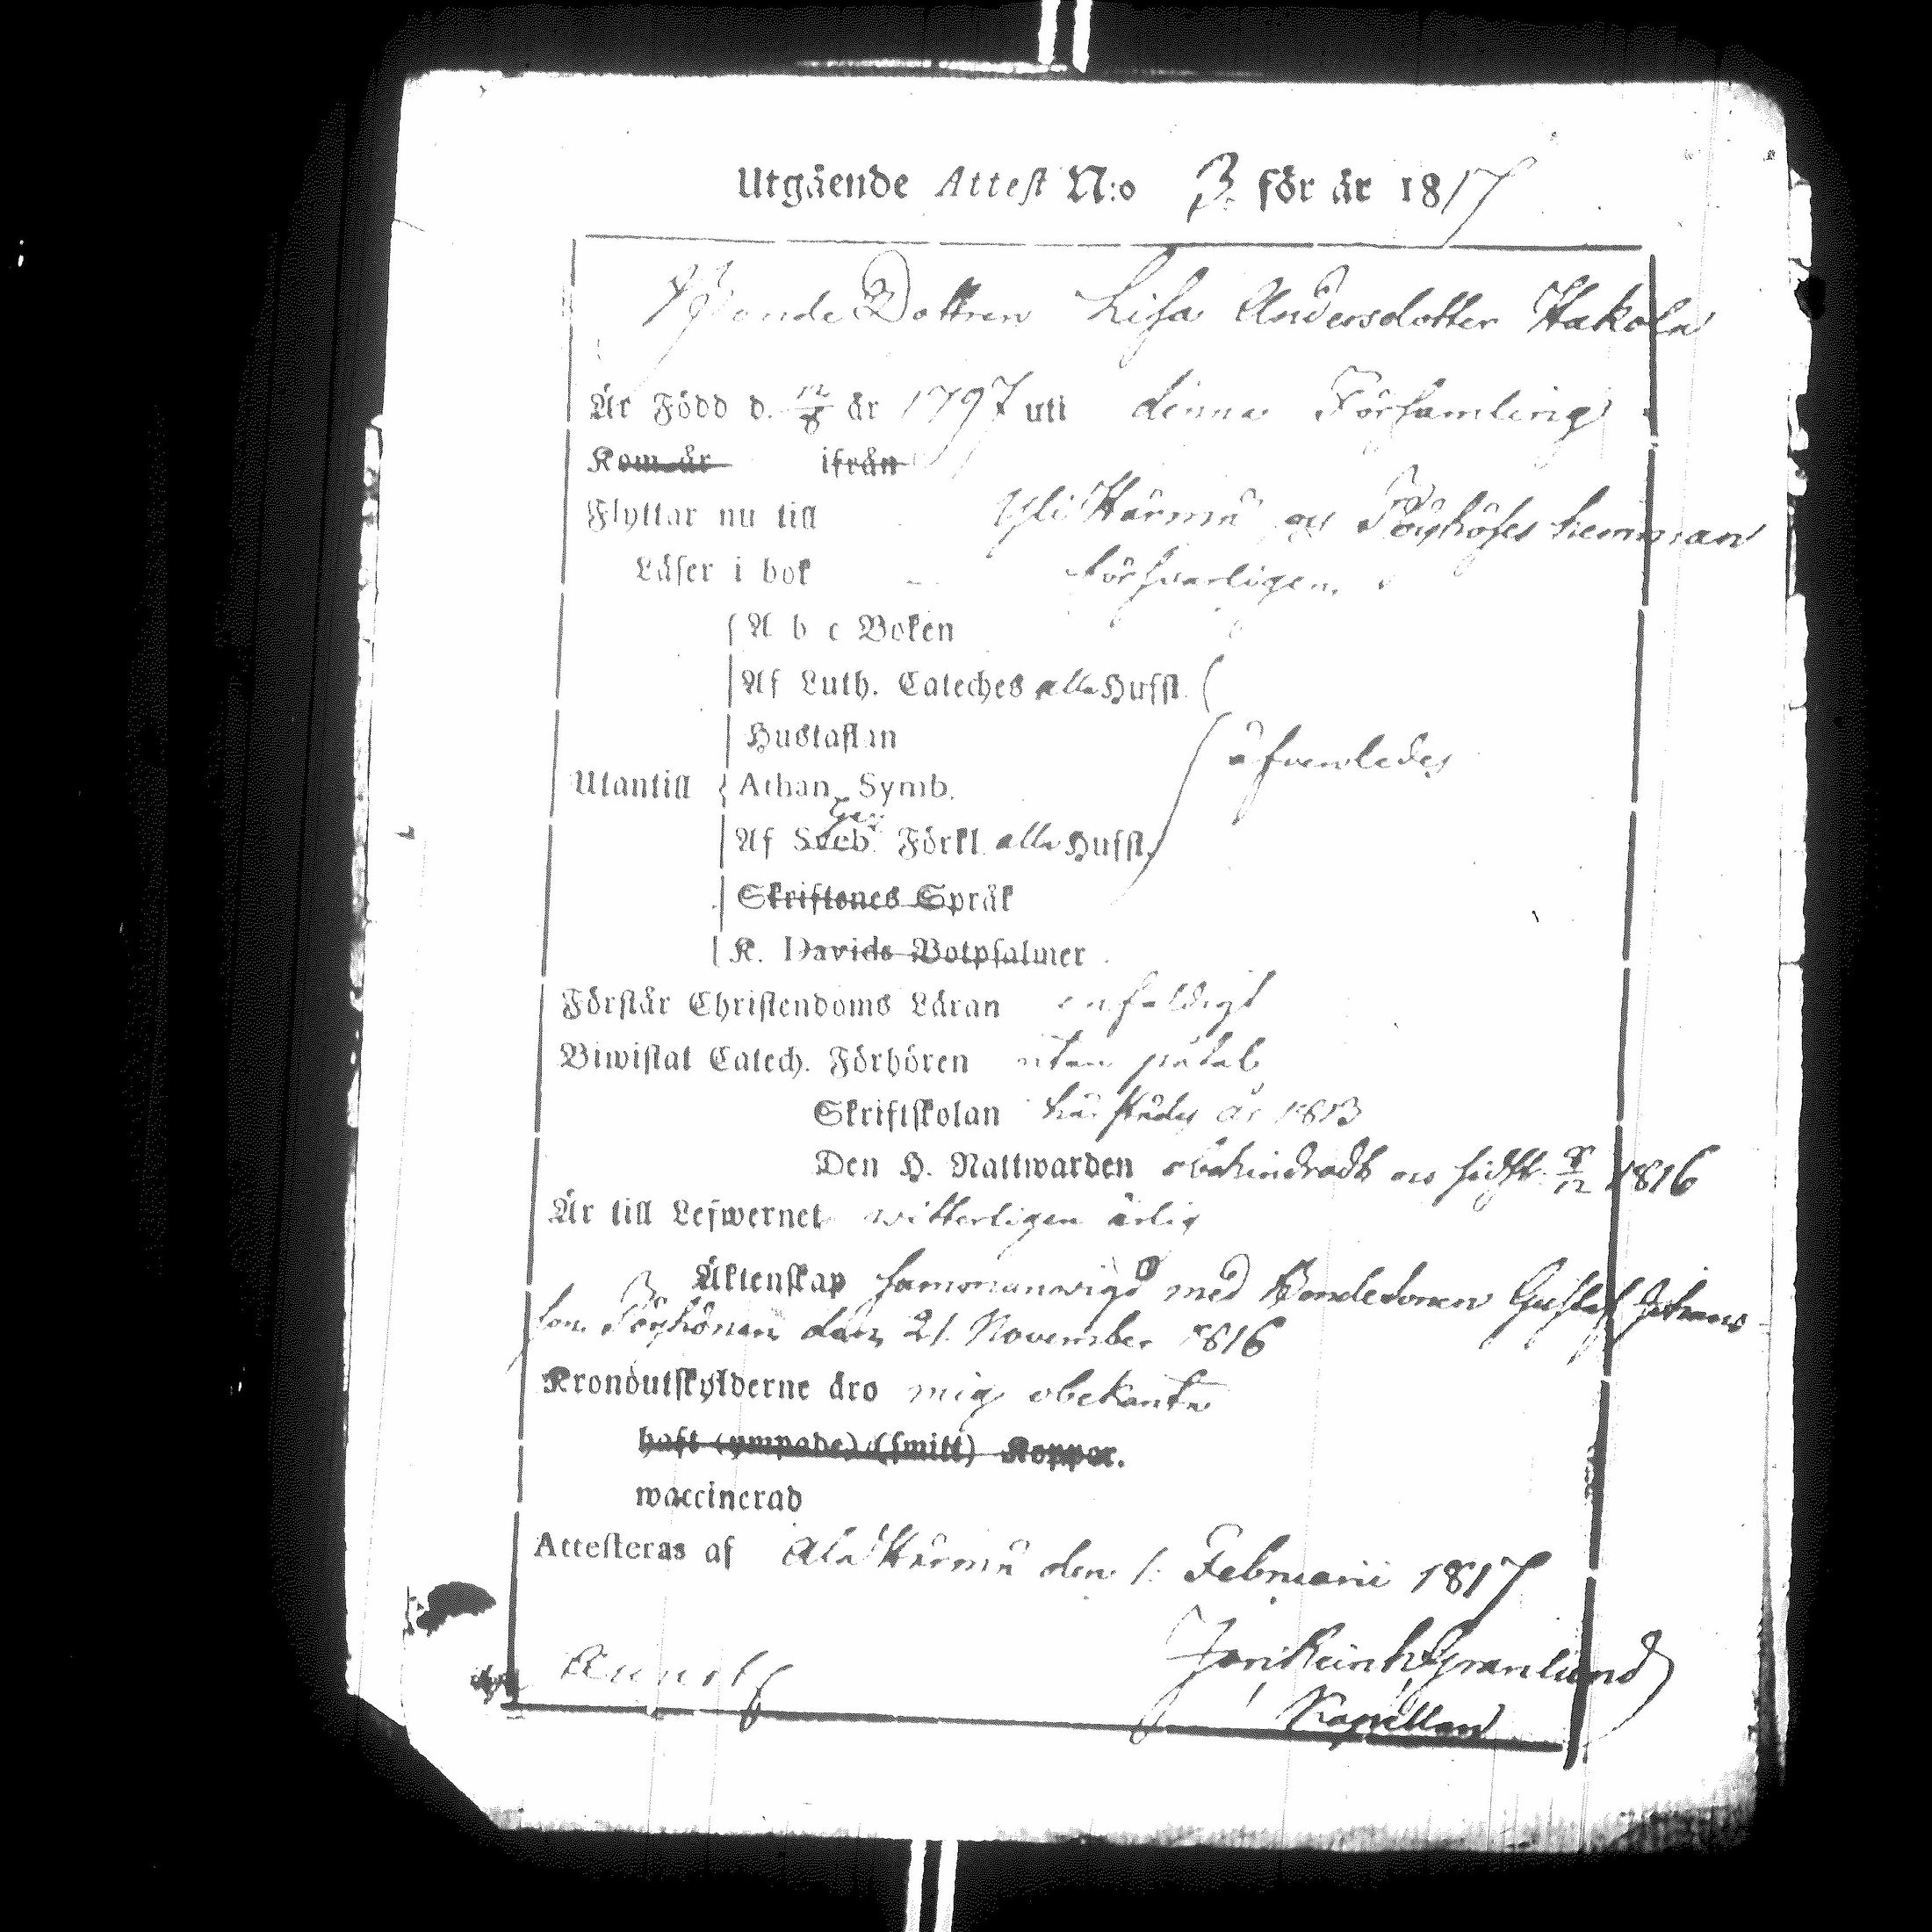 Utgående Attest N:o 3. för år 1817
Bonde Dottren Lisa Andersdotter Hakola
Är Född d. 12/8 år 1797 uti denna Församling
Kom år ifrån
Flyttar nu till Yli Härmä och Pöyhöses hemman
Läser i bok försvarligen.
A b c Boken
Af Luth. Cateches alla Hufst.
Hustaflan
äfvenledes
Utantill Athan. Symb.
Af Sveb. Förkl. alla Hufst.
Skriftenes Språk
K. Davids Botpsalmer
Förstår Christendoms Läran enfaldigt
Biwistat Catech. Förhören utan påtal
Skriftskolan härstädes år 1813
Den H. Nattwarden obehindradt och sidst 8/12 1816
Är till Lefwernet witterligen ärlig
Äktenskap sammanwigd med Bondesonen Gustaf Johans
son Pöyhönen den 21. November 1816
Kronoutskylderne äro mig obekanta
haft (ympade) (smitt) Koppor.
waccinerad
Attesteras af Ala Härmä den 1. Februarii 1817
Joh Reinh Granlund
Kapellan